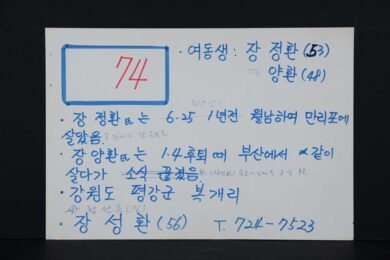 74
· 여동생 : 장 정환 (53)
양환 (48)
· 장 정환 氏는 6·25 1년전 월남하여 만리포에
살았음.
· 장 양환 氏는 1·4후퇴 때 부산에서 같이
살다가 소식 끊겼음.
· 강원도 평강군 복개리
· 장 성환 (56) T. 724-7523